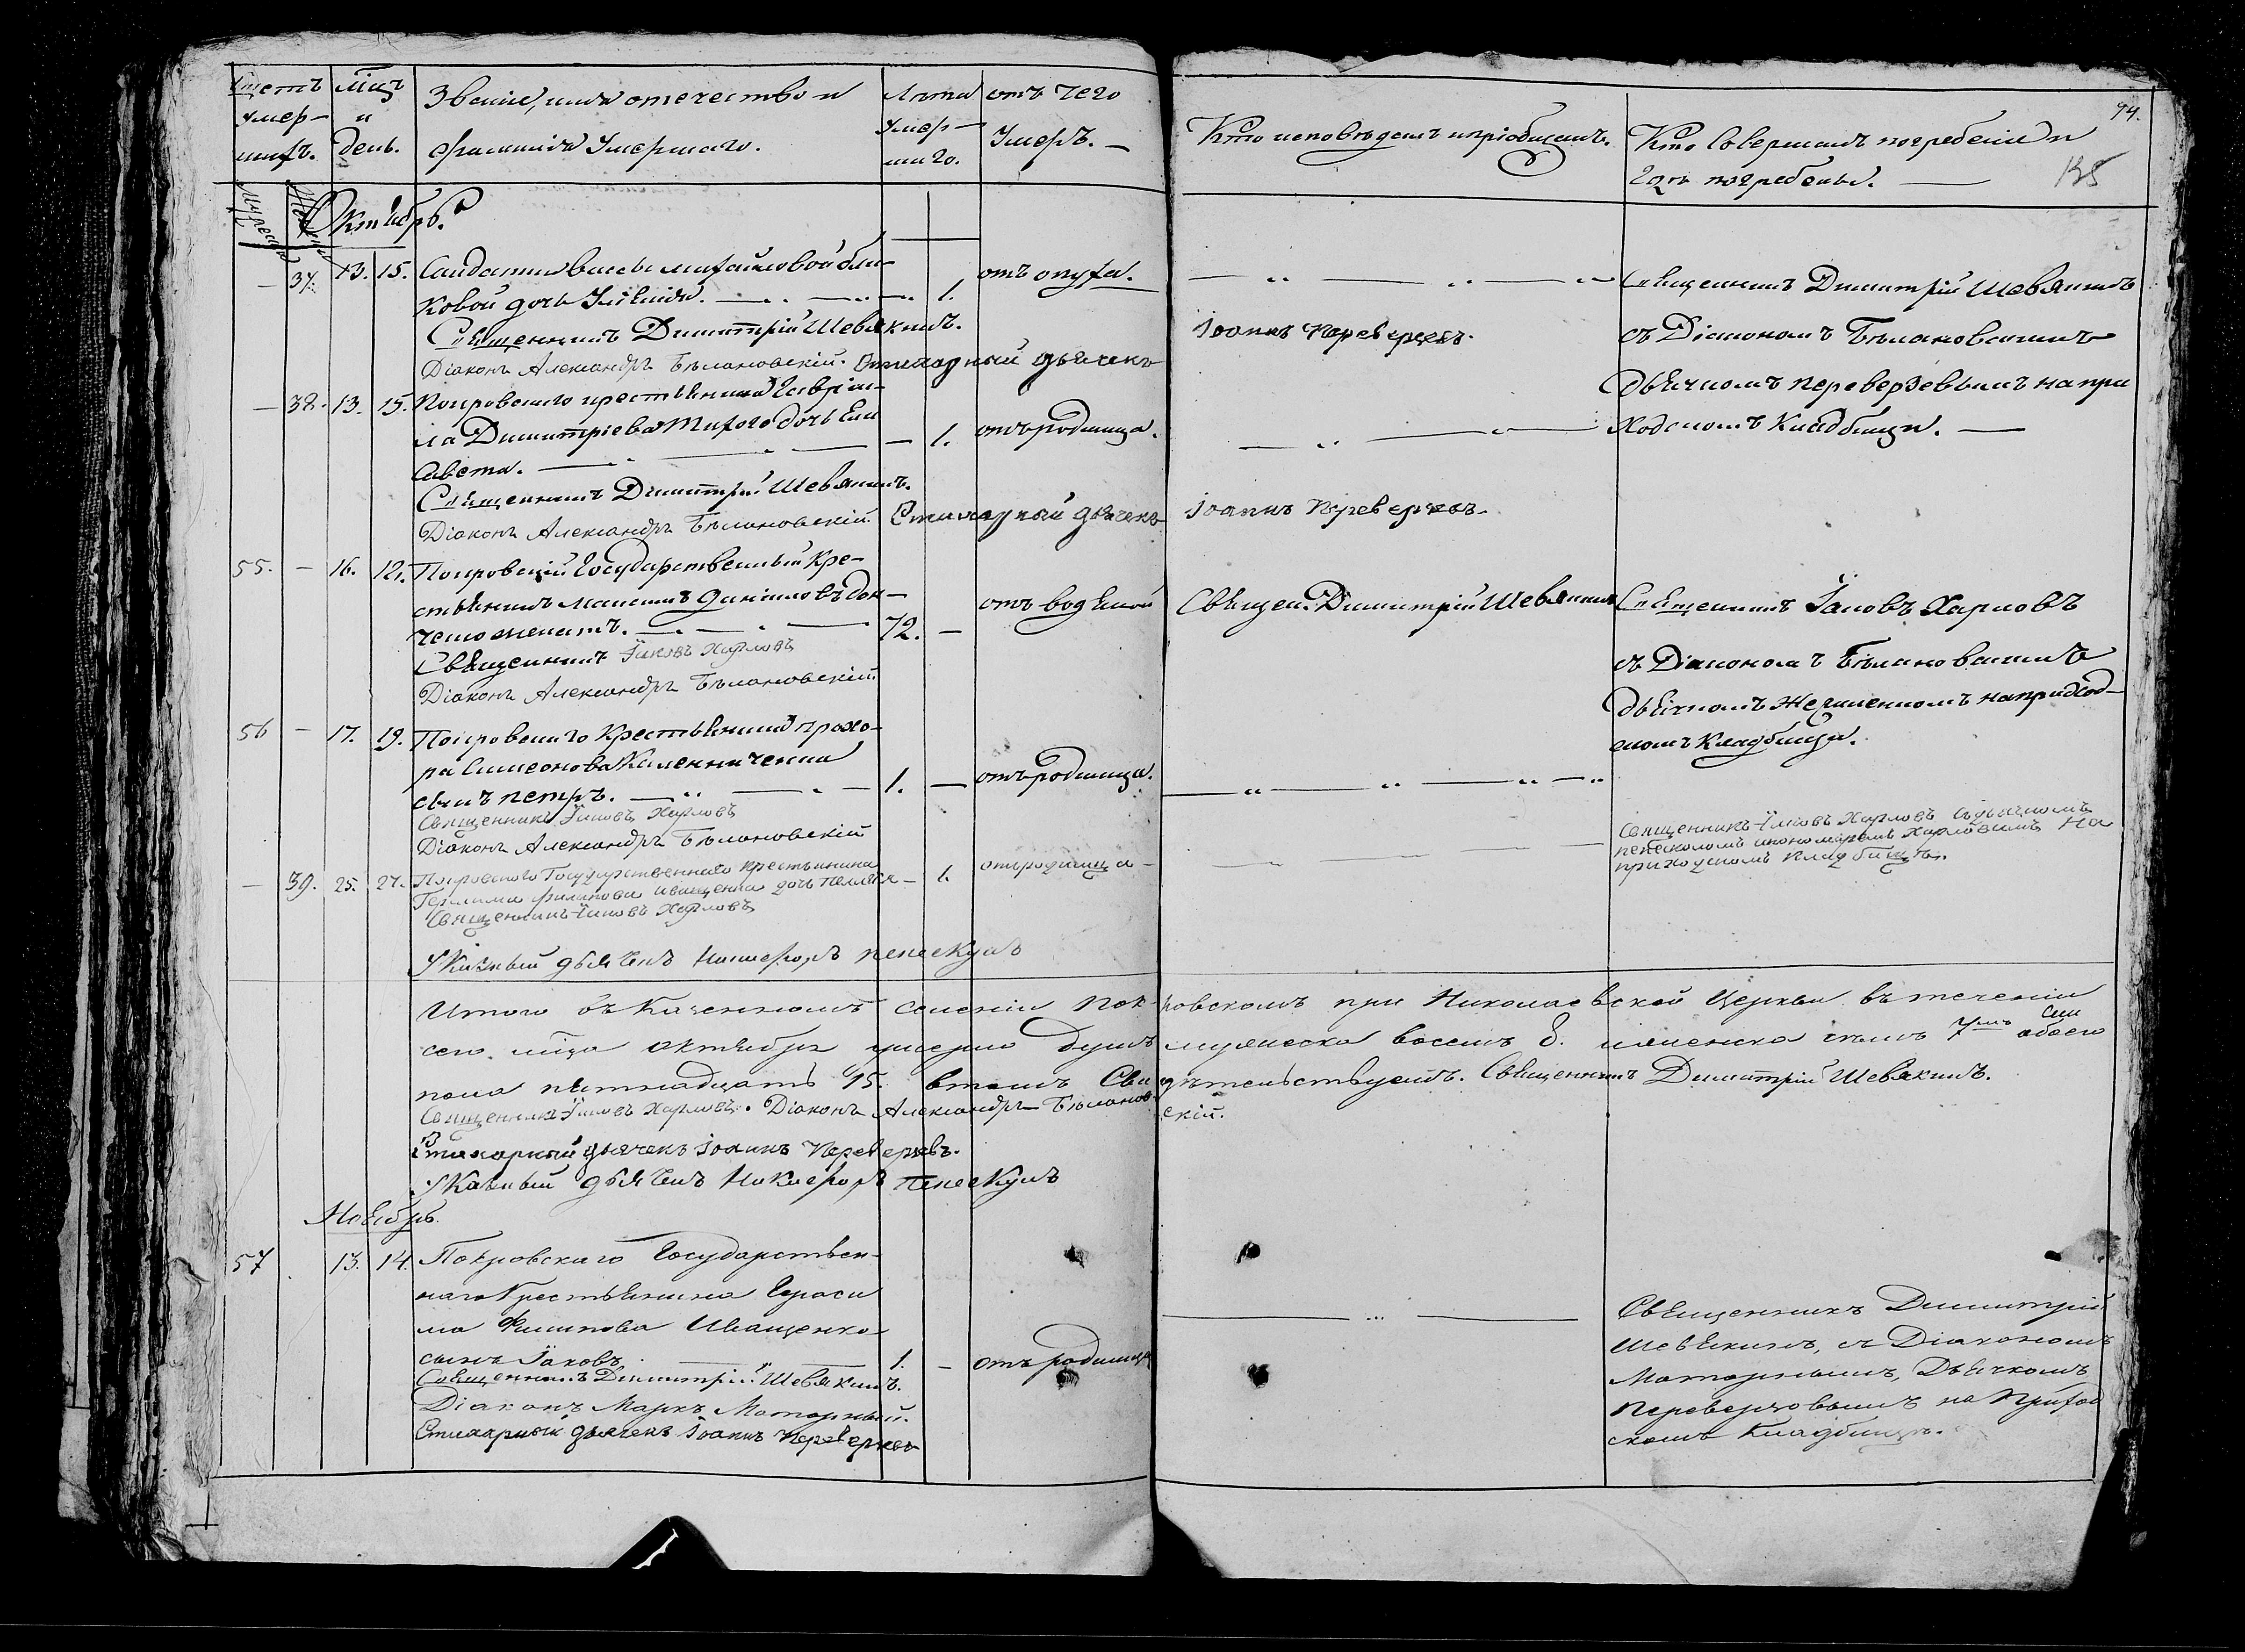 Счетъ умер-шихъ.
Мцъ и день.
Званіе, имя отечество и
фамилія Умершаго.
Лѣта умер-шаго.
отъ чего
Умеръ. —
Кто исповѣдалъ и пріобщалъ.
Кто Совершалъ погребеніе и
гдѣ погребены. —
94.
135
Октябрь.
— 37. 13. 15. Салдатки Вассы Михайловой
ковой дочь — 1. отъ опуха.
Священникъ Димитрій Шевякинъ.
Діаконъ Александръ Бѣлановскій. Стихарный дьячекъ Іоаннъ Переверзевъ.
Священникъ Димитрій Шевякинъ
съ Діакономъ Бѣлановскимъ
дьячкомъ Переверзевымъ на при
ходскомъ Кладбищи. —
— 38. 13. 15. Покровскаго крестьянина Гаврі-
ла Димитріева Тихого дочь Ели
савета. — 1. отъ родимца.
Священникъ Димитрій Шевякинъ.
Діаконъ Александръ Бѣлановскій Стихарный дьячекъ Іоаннъ Переверзевъ.
55. — 16. Покровскій Государственный Кре-
стьянинъ Максимъ Даніиловъ
женатъ. 72. — отъ водяной
Священ. Димитрій Шевякинъ
Священникъ Іаковъ Харловъ
Діаконъ Александръ Бѣлановскій
Священникъ Іаковъ Харловъ
съ Діакономъ Бѣлановскимъ
дьячкомъ на приход-
скомъ Кладбищи.
56 — 17. 19. Покровскаго Крестьянина Прохо-
ра Симеонова
сынъ Петръ. 1. — отъ родимца.
Священникъ Іаковъ Харловъ
Діаконъ Александръ Бѣлановскій
Священникъ Іаковъ Харловъ съ дьячкомъ
пенескуломъ и пономаремъ Харловымъ на
приходскомъ кладбищѣ.
— 39. 25. 27. Покровского Государственнаго крестьянина
Герасима Филипова Иващенка дочь Пелагія — 1. отъ родимца —
Священникъ Іаковъ Харловъ
Указный дьячекъ Никифоръ Пенескулъ
Итого въ Казенномъ селеніи Покровскомъ при Николаевской Церкви въ теченіи
сего мца Октября умерло душъ мужеска восемь 8. женска семь 7мь обоего
пола пятнадцать 15. втомъ Свидѣтельствуемъ. Священникъ Димитрій Шевякинъ.
Священникъ Іаковъ Харловъ. Діаконъ Александръ Бѣлановскій.
Стихарный дьячекъ Іоаннъ Переверзевъ.
Указный дьячекъ Никифоръ Пенескулъ
Ноябрь.
57 13. 14. Покровскаго Государствен-
наго Крестьянина Гераси
ма Филипова Иващенко-
сынъ Іаковъ 1. — отъ родимца
Священникъ Димитрій Шевякинъ.
Діаконъ Маркъ Моторный.
Стихарный дьячекъ Іоаннъ Переверзевъ
Священникъ Димитрій
Шевякинъ, съ Діакономъ
Моторнымъ, Дьячкомъ
Переверзовымъ на Приход
скомъ Кладбищѣ.